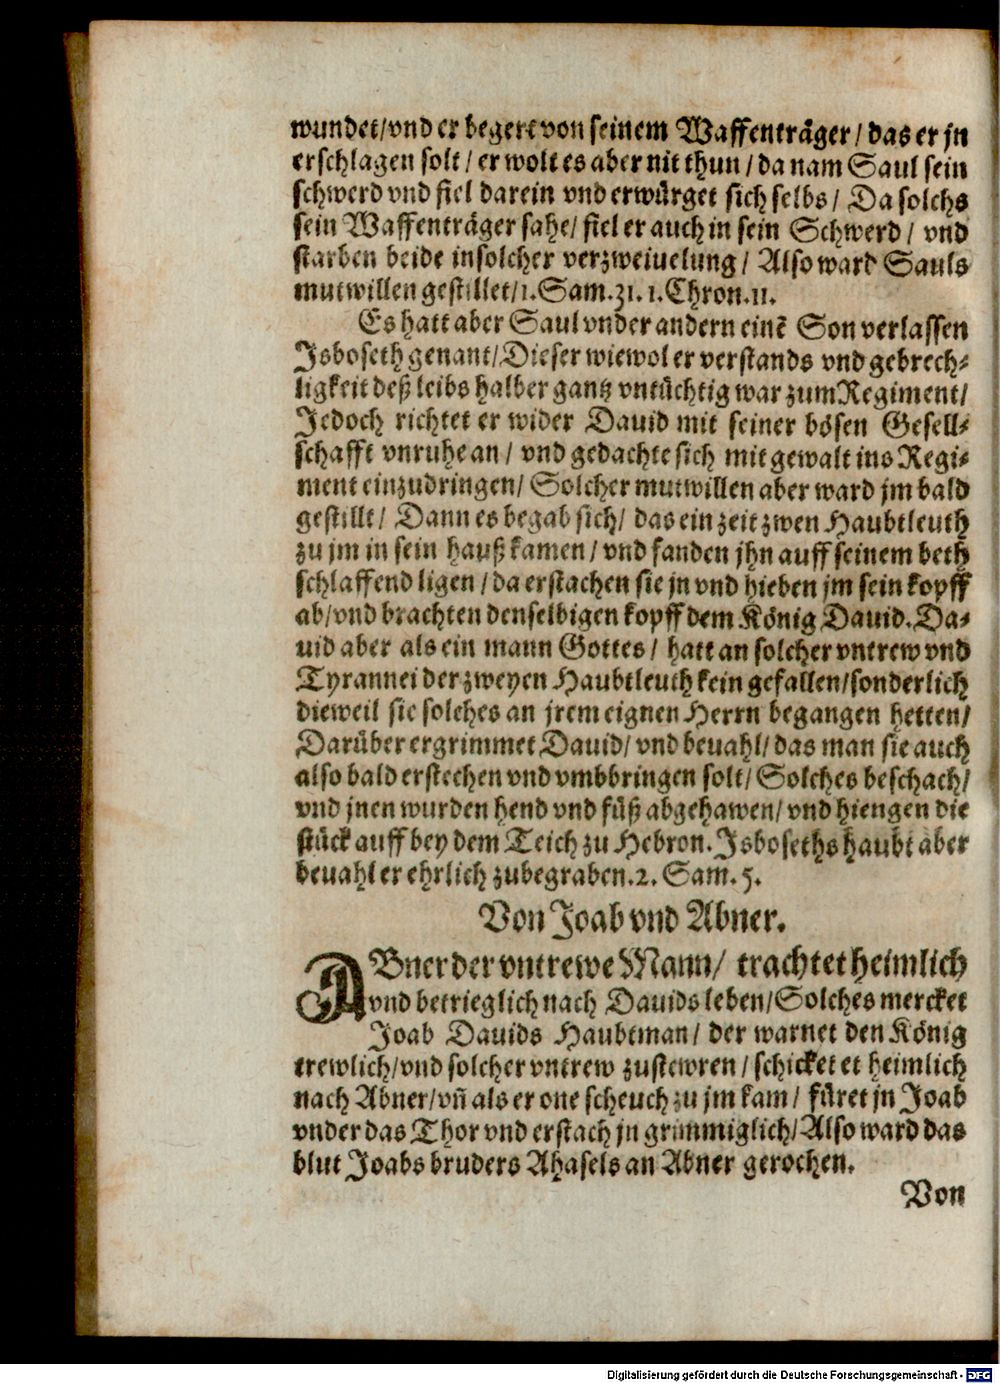 wundet/vnd er begert von seinem Waffenträger/ das er jn
erschlagen solt/ er wolt es aber nit thun/ da nam Saul sein
schwerd vnd fiel darein vnd erwürget sich selbs/ Da solchs
sein Waffenträger sahe/ fiel er auch in sein Schwerd/ vnd
starben beide in solcher verzweiuelung/ Also ward Sauls
mutwillen gestillet/1. Sam. 31. 1. Chron. 11.
Es hatt aber Saul vnder andern einē Son verlassen
Isboseth genant/ Dieser wiewol er verstands vnd gebrech-
ligkeit deß leibs halber gantz vntüchtig war zum Regiment/
Jedoch richtet er wider Dauid mit seiner bösen Gesell-
schafft vnruhe an/ vnd gedachte sich mit gewalt ins Regi-
ment einzudringen/ Solcher mutwillen aber ward jm bald
gestillt/ Dann es begab sich/ das ein zeit zwen Haubtleuth
zu jm in sein hauß kamen/ vnd fanden jhn auff seinem beth
schlaffend ligen/ da erstachen sie jn vnd hieben jm sein kopff
ab/vnd brachten denselbigen kopff dem König Dauid. Da-
uid aber als ein mann Gottes/ hatt an solcher vntrew vnd
Tyrannei der zweyen Haubtleuth kein gefallen/sonderlich
dieweil sie solches an jrem eignen Herrn begangen hetten/
Darüber ergrimmet Dauid/ vnd beuahl/ das man sie auch
also bald erstechen vnd vmbbringen solt/ Solches beschach/
vnd jnen wurden hend vnd füß abgehawen/ vnd hiengen die
stück auff bey dem Teich zu Hebron. Isboseths haubt aber
beuahl er ehrlich zubegraben. 2. Sam. 5.
Von Joab vnd Abner.
ABner der vntrewe Mann/ trachtet heimlich
vnd betrieglich nach Dauids leben/ Solches mercket
Joab Dauids Haubtman/ der warnet den König
trewlich/vnd solcher vntrew zustewren/ schicket et heimlich
nach Abner/vñ als er one scheuch zu jm kam/ füret jn Joab
vnder das Thor vnd erstach jn grimmiglich/ Also ward das
blut Joabs bruders Ahasels an Abner gerochen.
Von
Digitalisierung gefördert durch die Deutsche Forschungsgemeinschaft - DFG